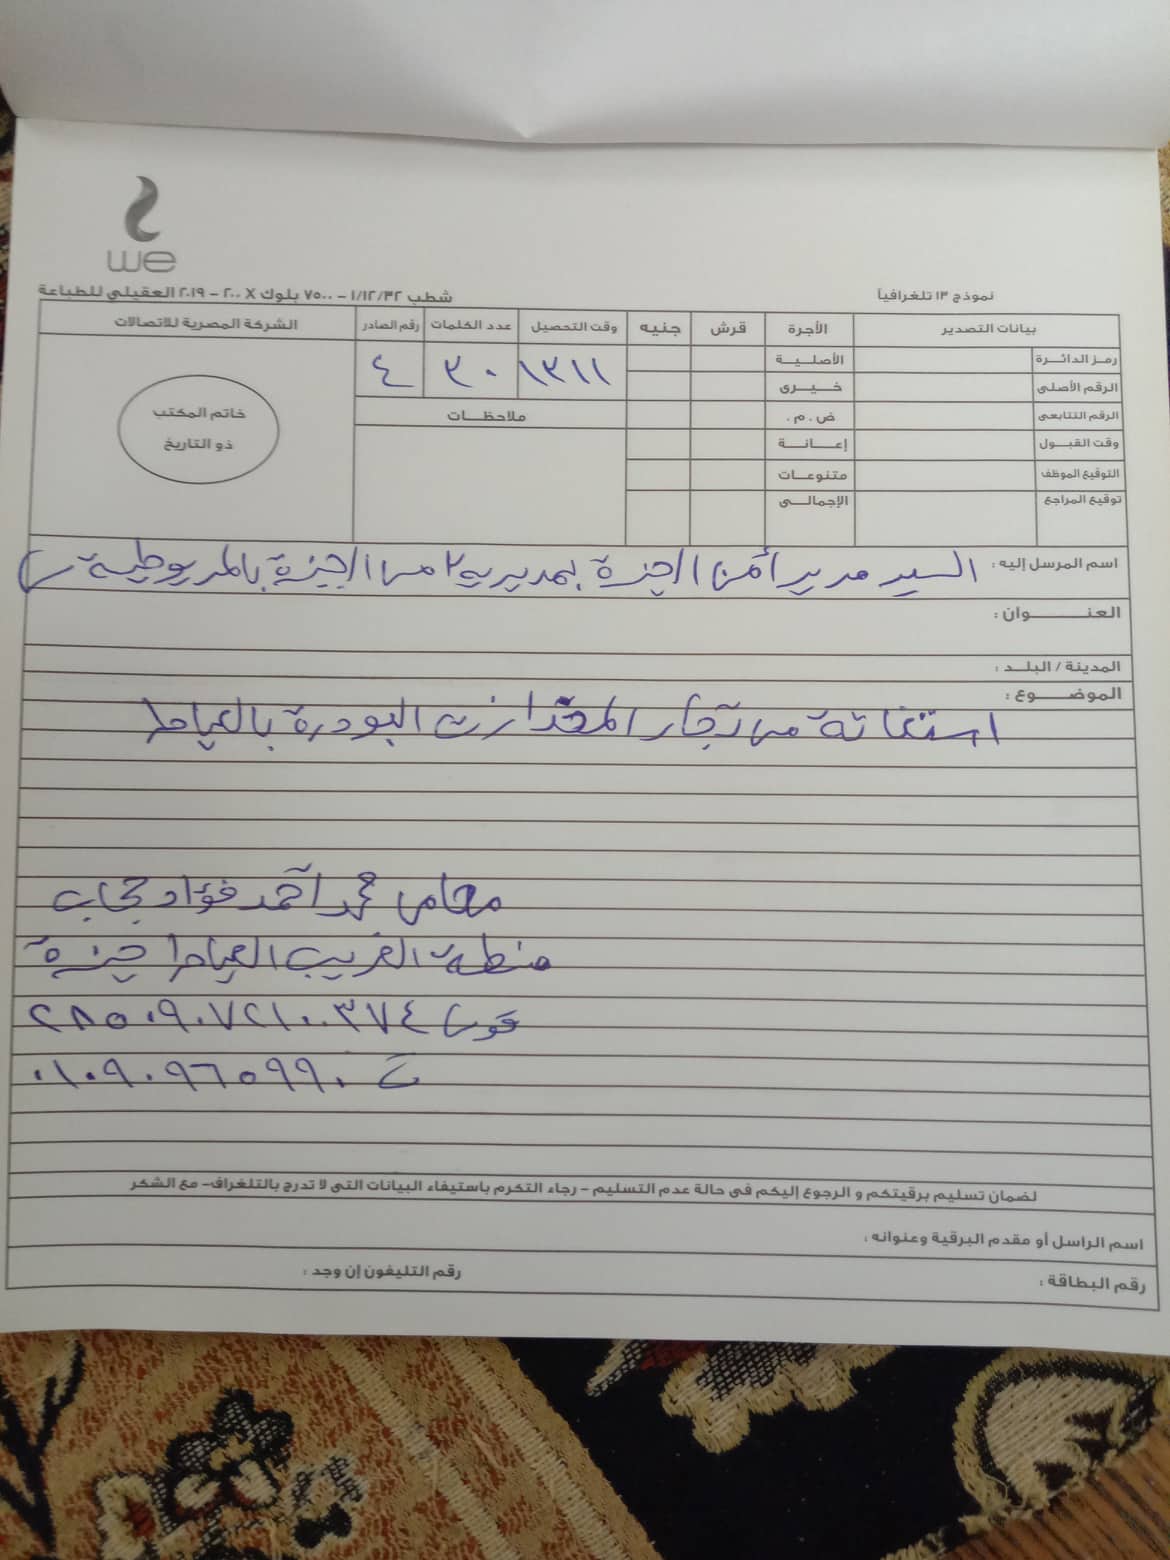 we
نموذج ١٣ تلغرافياً
شطب ١/١٢/٣٢ – ٧٥٠٠ بلوك X ٢٠٠ – ٢٠١٩ العقيلي للطباعة
بيانات التصدير
الأجرة
قرش
جنيه
وقت التحصيل
عدد الكلمات
رقم الصادر
الشركة المصرية للاتصالات
رمز الدائرة
الأصلية
١٣١١
٣٠
٤
الرقم الأصلى
خيرى
الرقم التتابعى
ض . م .
ملاحظات
خاتم المكتب
ذو التاريخ
وقت القبول
إعانة
التوقيع الموظف
متنوعات
توقيع المراجع
الإجمالى
اسم المرسل إليه : السيد مدير أمن الجيزة بمديرية امن الجيزة بالمريوطية
العنوان :
المدينة / البلد :
الموضوع :
استغاثة من تجار المخدارت البودرة بالعياط
محامى محمد أحمد فؤاد حجاب
منطقة الغريب العياط جيزة
قومى ٢٨٥٠٩٠٧٢١٠٠٣٧٤
ت ٠١٠٩٠٩٦٥٩٩٠
لضمان تسليم برقيتكم و الرجوع إليكم فى حالة عدم التسليم – رجاء التكرم باستيفاء البيانات التى لا تدرج بالتلغراف– مع الشكر
اسم الراسل أو مقدم البرقية وعنوانه :
رقم البطاقة :
رقم التليفون إن وجد :